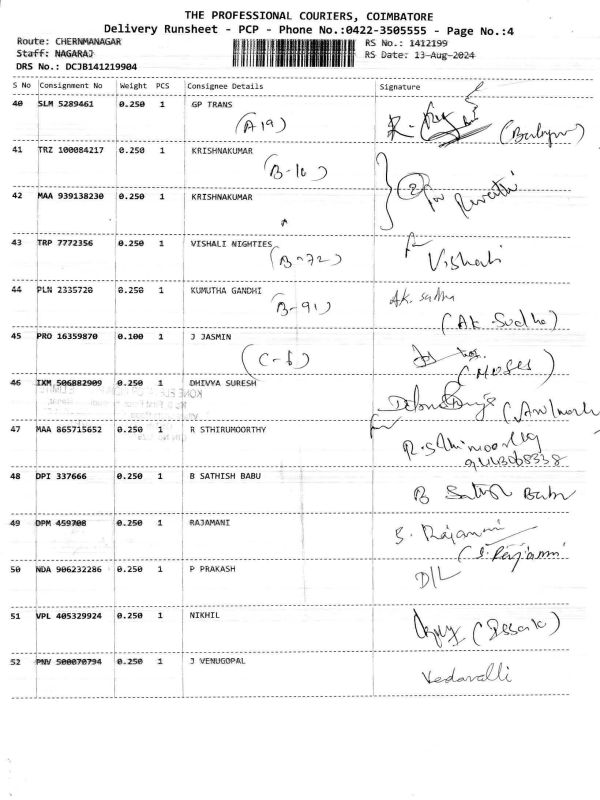 THE PROFESSIONAL COURIERS, COIMBATORE
Delivery Runsheet - PCP - Phone No.:0422-3505555 - Page No.:4
Route: CHERNMANAGAR RS No.: 1412199
Staff: NAGARAJ RS Date: 13-Aug-2024
DRS No.: DCJB141219904
S No Consignment No Weight PCS Consignee Details Signature
40 SLM 5289461 0.250 1 GP TRANS
(A19)
41 TRZ 100084217 0.250 1 KRISHNAKUMAR
(B-16)
42 MAA 939138230 0.250 1 KRISHNAKUMAR
(2) for Revathi
43 TRP 7772356 0.250 1 VISHALI NIGHTIES
(B-72) Vishali
44 PLN 2335720 0.250 1 KUMUTHA GANDHI
(B-91) AK. Sudha
(AK. Sudha)
45 PRO 16359870 0.100 1 J JASMIN
(C-6) (Moses)
46 IXM 506882909 0.250 1 DHIVYA SURESH
47 MAA 865715652 0.250 1 R STHIRUMOORTHY
48 DPI 337666 0.250 1 B SATHISH BABU
B Satish Babu
49 DPM 459708 0.250 1 RAJAMANI
S. Rajamani
50 NDA 906232286 0.250 1 P PRAKASH
D/L
51 VPL 405329924 0.250 1 NIKHIL
52 PNV 500070794 0.250 1 J VENUGOPAL
Vedavalli